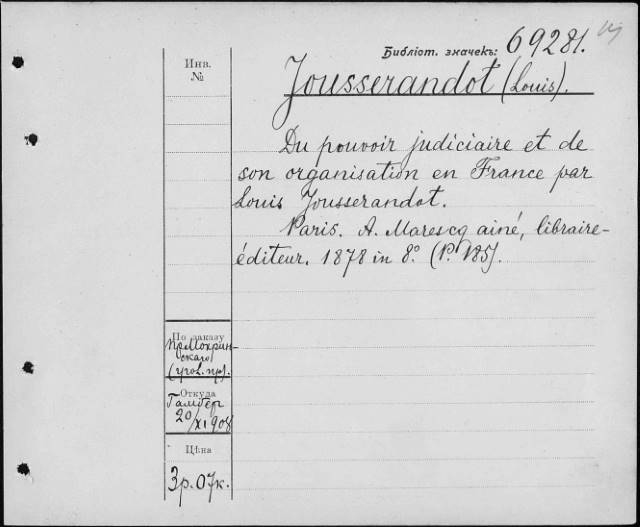 Библіот. значекъ: 69281.
Инв.
№
Jousserandot (Louis).
Du pouvoir judiciaire et de
son organisation en France par
Louis Jousserandot.
Paris. A. Marescq ainé, libraire-
éditeur. 1878 in 8º. (P. 185).
По заказу
пр. Мокрин-
скаго
(угол. пр).
Откуда
Гамбер
20/XI 908
Цѣна
3р. 07к.